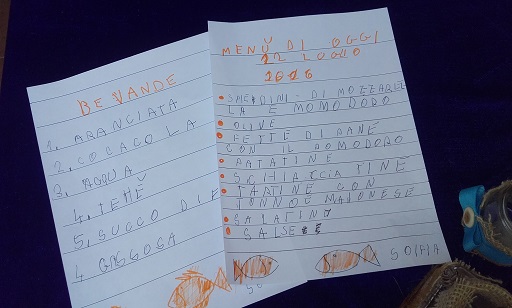 BEVANDE
1. ARANCIATA
2. COCACOLA
3. ACQUA
4. TEHĚ
5. SUCCO DI F
4. GASGOSA
MENÙ DI OGGI
12 LOGLIO
1016
SPIEDINI - DI MOZZARELE
LA E MOMODODO
OLIVE
FETTE DI PANE
CON IL POMODORO
PATATINE
SCHIACCIATINE
TARTINE CON
TONNO E MAIONESE
SALATINI
SALSE
SO
SOFIA